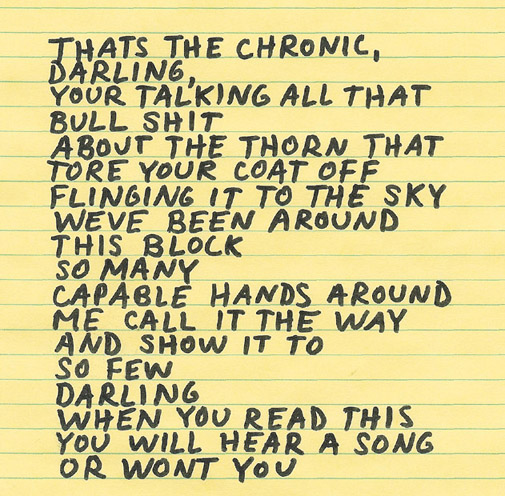 THATS THE CHRONIC,
DARLING,
YOUR TALKING ALL THAT
BULL SHIT
ABOUT THE THORN THAT
TORE YOUR COAT OFF
FLINGING IT TO THE SKY
WEVE BEEN AROUND
THIS BLOCK
SO MANY
CAPABLE HANDS AROUND
ME CALL IT THE WAY
AND SHOW IT TO
SO FEW
DARLING
WHEN YOU READ THIS
YOU WILL HEAR A SONG
OR WONT YOU